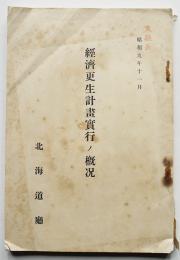 昭和九年十一月
經濟更生計畫實行ノ概況
北海道廳